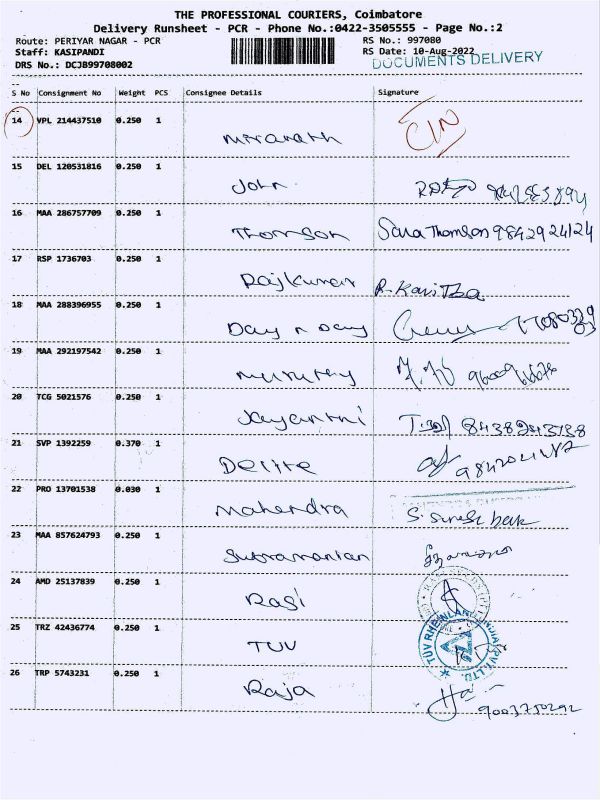 THE PROFESSIONAL COURIERS, Coimbatore
Delivery Runsheet - PCR - Phone No.:0422-3505555 - Page No.:2
Route: PERIYAR NAGAR - PCR RS No.: 997080
Staff: KASIPANDI RS Date: 10-Aug-2022
DRS No.: DCJB99708002 DOCUMENTS DELIVERY
S No Consignment No Weight PCS Consignee Details Signature
14 VPL 214437510 0.250 1
CIN
15 DEL 120531816 0.250 1
John
16 MAA 286757709 0.250 1
Thomson Sara Thomson 9842924124
17 RSP 1736703 0.250 1
Rajkumar R. Kavitha
18 MAA 288396955 0.250 1
Day n Day
19 MAA 292197542 0.250 1
20 TCG 5021576 0.250 1
Jayanthi 8438243138
21 SVP 1392259 0.370 1
Delite
22 PRO 13701538 0.030 1
Mahendra
23 MAA 857624793 0.250 1
Subramanian
24 AMD 25137839 0.250 1
Rasi
25 TRZ 42436774 0.250 1
TUV TUV RHEINLAND (INDIA) PVT. LTD.
26 TRP 5743231 0.250 1
Raja
9003750292